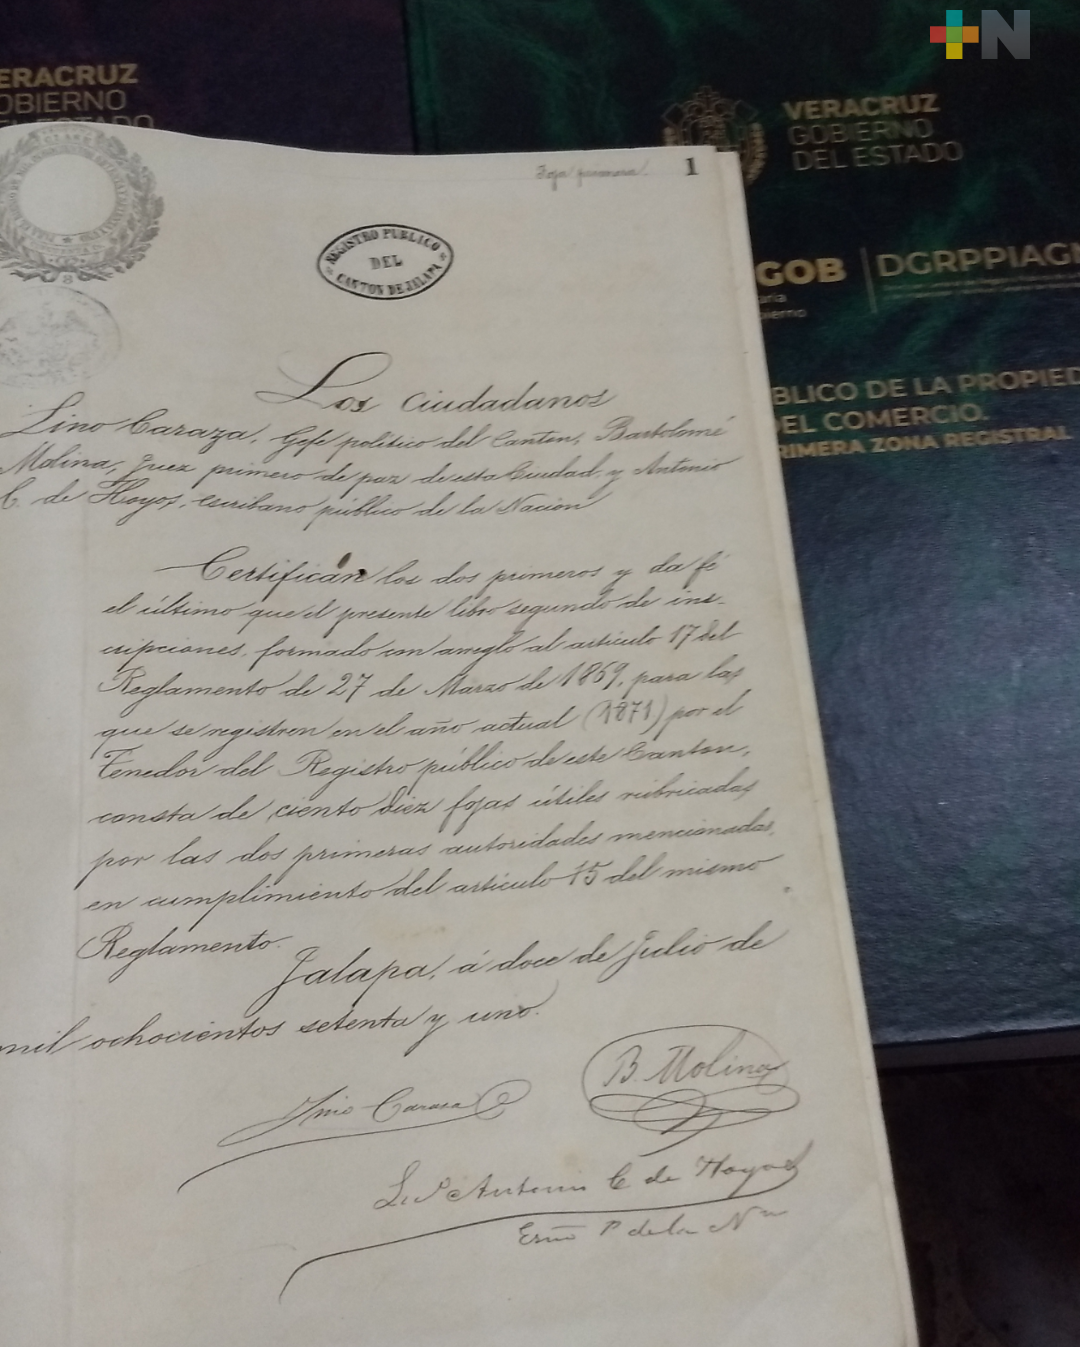 +N
ERACRUZ
OBIERNO
DEL ESTADO
VERACRUZ
GOBIERNO
DEL ESTADO
GOB
DGRPPIAGN
aria
bierno
BLICO DE LA PROPIED
DEL COMERCIO.
RIMERA ZONA REGISTRAL
Foja primera. 1
REGISTRO PUBLICO
DEL
CANTON DE JALAPA
8
Los Ciudadanos
Lino Caraza, Gefe político del Canton, Bartolomé
Molina, Juez primero de paz de esta Ciudad, y Antonio
C. de Hoyos, escribano público de la Nacion
Certifican los dos primeros y da fé
el último que el presente libro segundo de ins-
cripciones, formado con arreglo al artículo 17 del
Reglamento de 27 de Marzo de 1869, para las
que se registren en el año actual (1871) por el
Tenedor del Registro público de este Canton,
consta de ciento diez fojas útiles rubricadas
por las dos primeras autoridades mencionadas,
en cumplimiento del artículo 15 del mismo
Reglamento.
Jalapa, á doce de Julio de
mil ochocientos setenta y uno.
Lino Caraza
B. Molina
Antonio C. de Hoyos
P. de la N